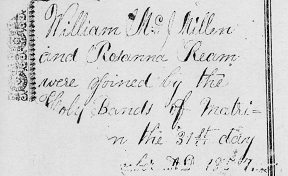 William Mc Millen
and Rosanna Ream
were joined by the
Holy Bands of Matri-
n the 31st day
A.D.